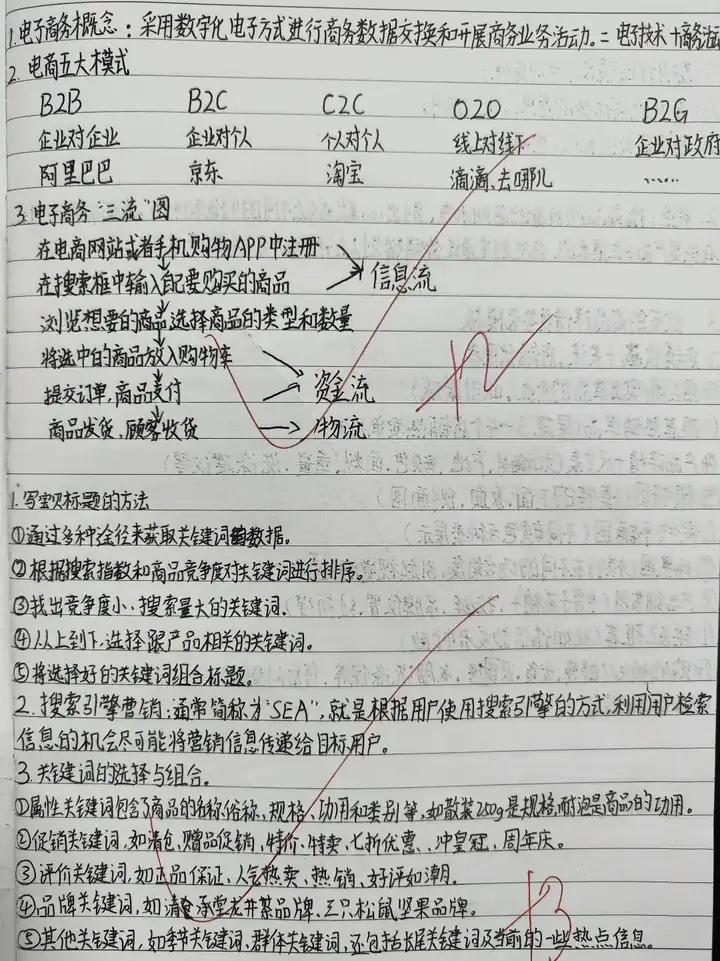 1.电子商务概念：采用数字化电子方式进行商务数据交换和开展商务业务活动。=电子技术+商务活
2. 电商五大模式
B2B B2C C2C O2O B2G
企业对企业 企业对个人 个人对个人 线上对线下 企业对政府
阿里巴巴 京东 淘宝 滴滴、去哪儿 ……
3.电子商务"三流"图
在电商网站或者手机购物APP中注册
在搜索框中输入自己要购买的商品 信息流
浏览想要的商品,选择商品的类型和数量
将选中的商品放入购物车
提交订单,商品支付 资金流
商品发货,顾客收货 物流
+2
1.写宝贝标题的方法
①通过多种途径来获取关键词的数据。
②根据搜索指数和商品竞争度对关键词进行排序。
③找出竞争度小、搜索量大的关键词.
④从上到下,选择跟产品相关的关键词。
⑤将选择好的关键词组合标题。
2.搜索引擎营销:通常简称为"SEA",就是根据用户使用搜索引擎的方式,利用用户检索
信息的机会尽可能将营销信息传递给目标用户。
3.关键词的选择与组合。
①属性关键词包含了商品的名称俗称、规格、功用和类别等,如散装250g是规格,耐泡是商品的功用。
②促销关键词,如清仓,赠品促销,特价、特卖、七折优惠、冲皇冠、周年庆。
③评价关键词,如正品保证、人气热卖、热销、好评如潮.
④品牌关键词,如清承堂龙井茶品牌、三只松鼠坚果品牌。
⑤其他关键词,如季节关键词、群体关键词,还包括长尾关键词及当前的一些热点信息。
+3